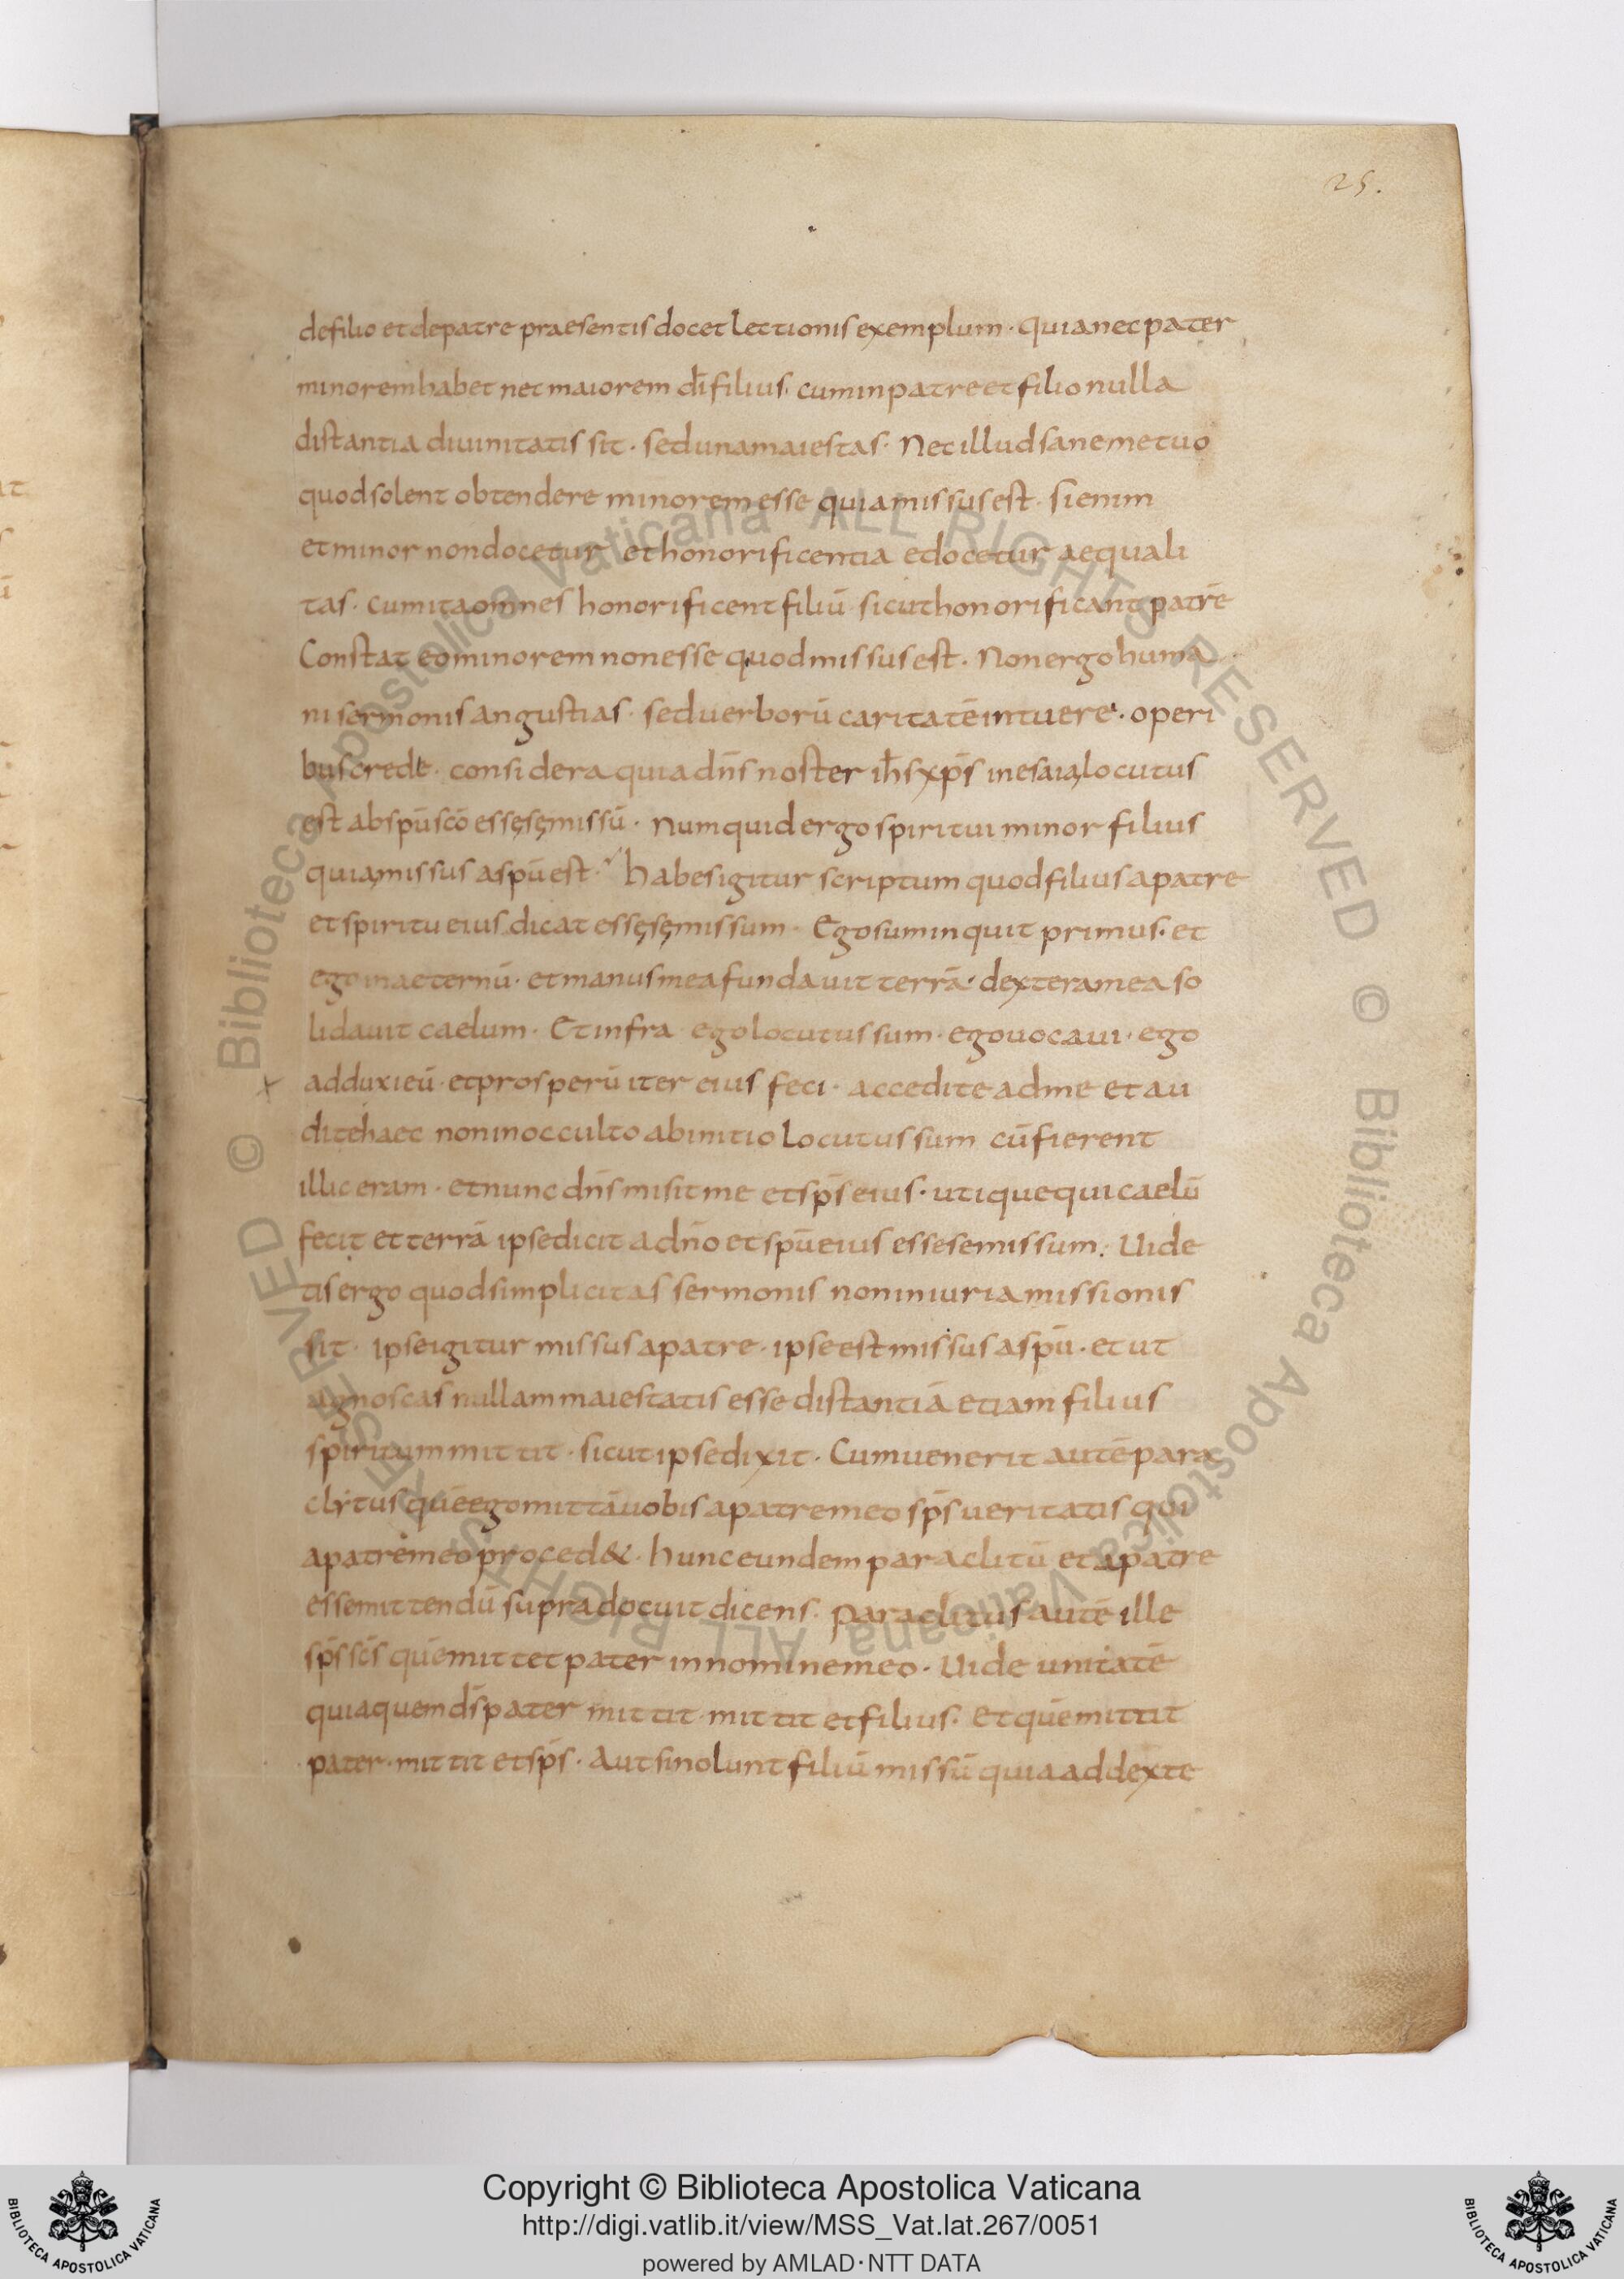 25.
defilio et depatre praesentis docet lectionis exemplum · quia nec pater
minorem habet nec maiorem dī filius · cum in patre et filio nulla
distantia diuinitatis sit · sed una maiestas · Nec illud sane metuo
quod solent obtendere minorem esse quia missus est · si enim
et minor non docetur et honorificentia edocetur aequali
tas · cum ita omnes honorificent filiū sicut honorificant patrē
Constat eo minorem non esse quod missus est · Non ergo huma
ni sermonis angustias · sed uerborū caritatē intuere · operi
bus crede · considera quia dn̄s noster ih̄s xp̄s in esaia locutus
est ab spū scō essę sę missū · Numquid ergo spiritui minor filius
quia missus a spū est · habes igitur scriptum quod filius a patre
et spiritu eius dicat essę sę missum · Ego sum inquit primus · et
ego in aeternū · et manus mea fundauit terrā · dextera mea so
lidauit caelum · Et infra ego locutus sum · ego uocaui · ego
adduxi eū · et prosperū iter eius feci · accedite ad me et au
dite haec non in occulto ab initio locutus sum cū fierent
illic eram · et nunc dn̄s misit me et sp̄s eius · utique qui caelū
fecit et terrā ipse dicit a dn̄o et spū eius esse se missum · Uide
tis ergo quod simplicitas sermonis non iniuria missionis
sit · ipse igitur missus a patre · ipse est missus a spū · et ut
agnoscas nullam maiestatis esse distantiā etiam filius
spiritum mittit · sicut ipse dixit · Cum uenerit autē para
clytus quē ego mittā uobis a patre meo sp̄s ueritatis qui
a patre meo proced& · hunc eundem paraclitū et a patre
esse mittendū supra docuit dicens · Paraclitus autē ille
sp̄s sc̄s quē mittet pater in nomine meo · Uide unitatē
quia quem ds̄ pater mittit · mittit et filius · et quē mittit
pater · mittit et sp̄s · Aut si nolunt filiū missū quia ad dexte
© Biblioteca Apostolica Vaticana ALL RIGHTS RESERVED © Biblioteca Apostolica Vaticana ALL RIGHTS RESERVED
Copyright © Biblioteca Apostolica Vaticana
http://digi.vatlib.it/view/MSS_Vat.lat.267/0051
powered by AMLAD·NTT DATA
BIBLIOTECA APOSTOLICA VATICANA
BIBLIOTECA APOSTOLICA VATICANA